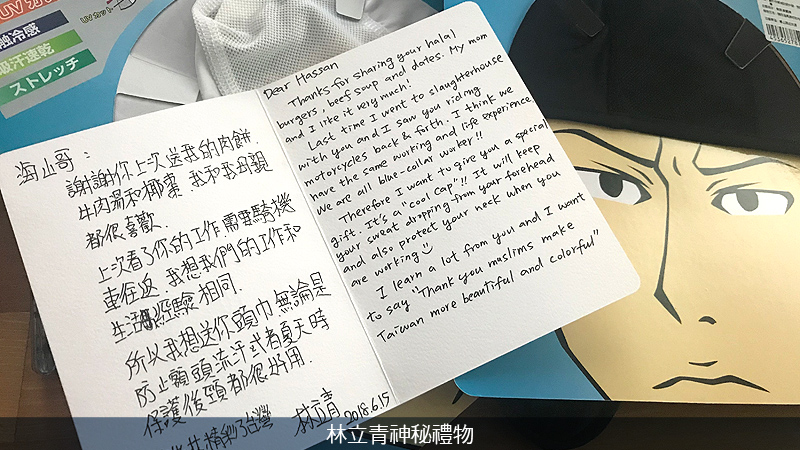 UVカット
触冷感
吸汗速乾
ストレッチ
海山哥：
謝謝你上次送我的肉餅.
牛肉湯和椰棗 我和我母親
都很喜歡.
上次看了你的工作需要騎機
車往返.我想我們的工作和
生活經驗相同.
所以我想送你頭巾無論是
防止額頭流汗或者夏天時
保護後頸都很好用.
林立青
2018.6.15
Dear Hassan
Thanks for sharing your halal
burgers, beef soup and dates. My mom
and I like it very much!
Last time I went to slaughterhouse
with you and I saw you riding
motorcycles back & forth. I think we
have the same working and life experience.
We are all blue-collar worker!!
Therefore I want to give you a special
gift. It's a "cool cap"!! It will keep
your sweat dropping from your forehead
and also protect your neck when you
are working
I learn a lot from you and I want
to say "Thank you muslims make
Taiwan more beautiful and colorful"
林立青神秘禮物